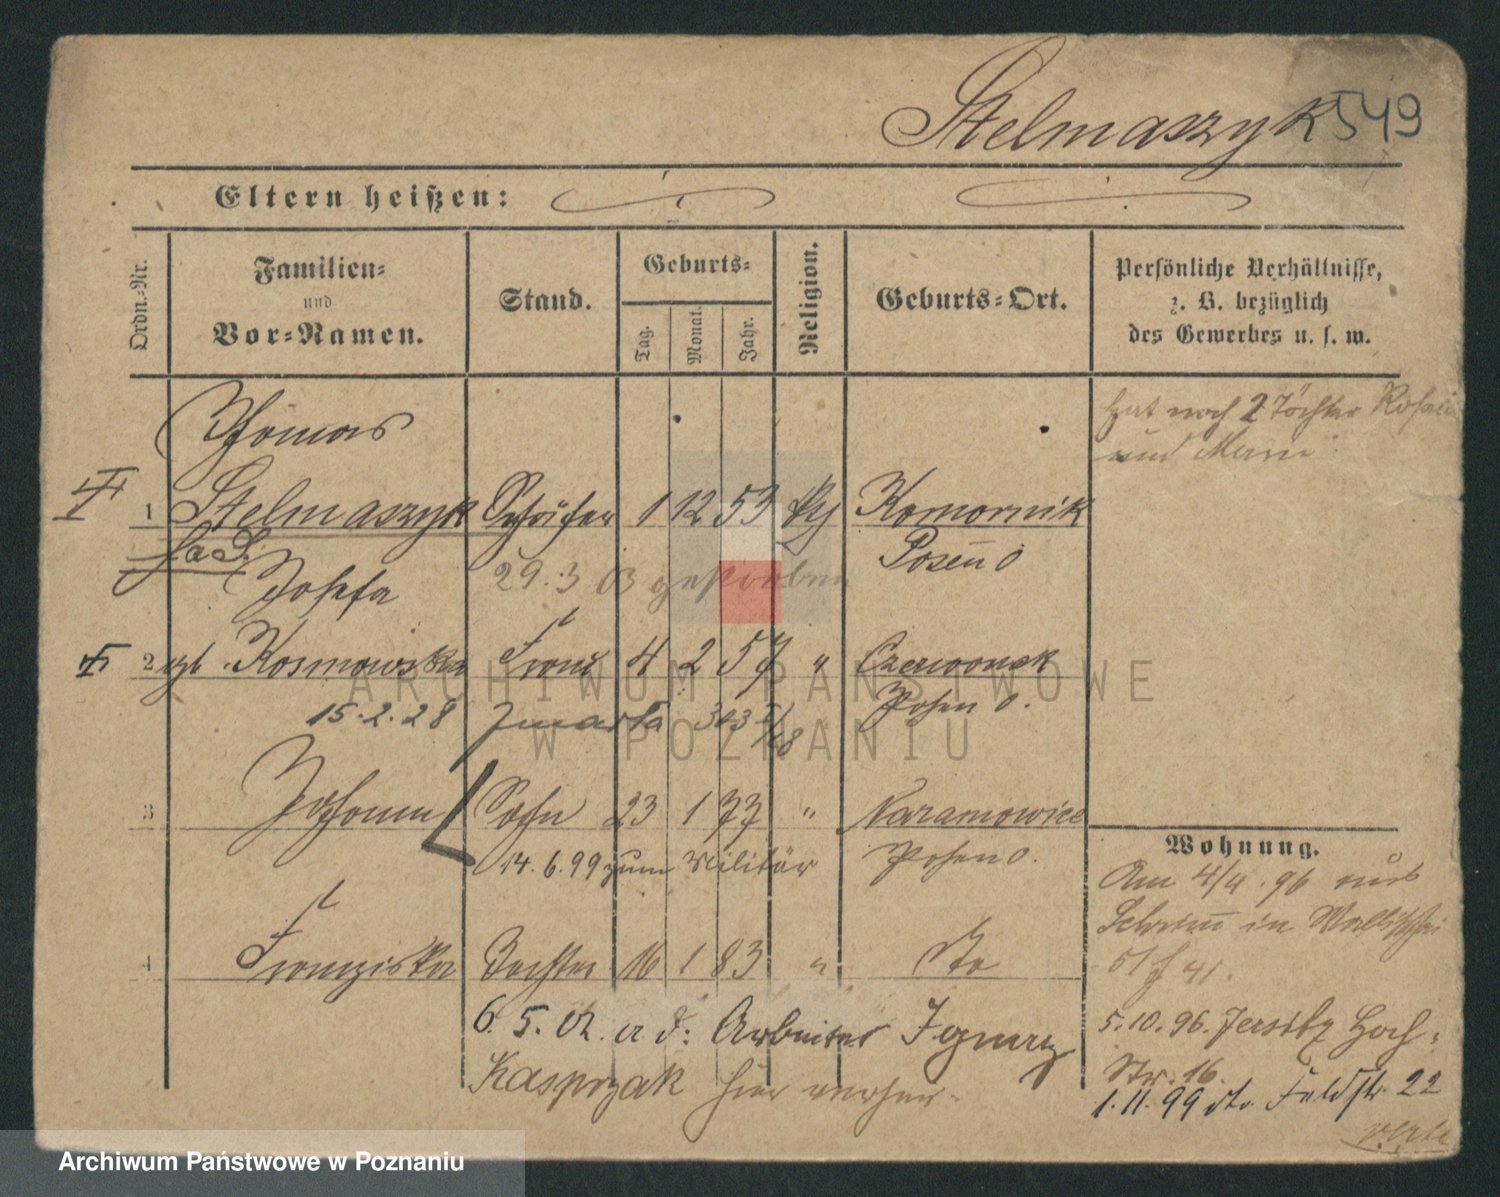 Stelmaszyk 549
Eltern heißen:
Ordn.-Nr.
Familien- und Vor-Namen.
Stand.
Geburts-
Tag.
Monat.
Jahr.
Religion.
Geburts-Ort.
Persönliche Verhältnisse,
z. B. bezüglich
des Gewerbes u. s. w.
Hat noch 2 Töchter Rosalie
und Marie
Thomas
1 Stelmaszyk Schäfer 1 12 53 Komornik
Posen O
29.3 03 gestorben
Josefa
2 geb. Kosmowska Frau 4 2 57 " Czerwonak
Posen O.
15.2.28 zmarła
Johann
3 Sohn 23 1 77 " Naramowice
Posen O.
14.6.99 zum Militär
4 Franziska Tochter 16 1 83 " dto
6.5.02. a d: Arbeiter Ignatz
Kasprzak hier
Wohnung.
Am 4/4.96 aus
in Wallischei
41.
5.10.96. Jersitz Hoch-
Str. 16.
1.11.99 dto. Feldstr. 22
verte
ARCHIWUM PAŃSTWOWE
W POZNANIU
Archiwum Państwowe w Poznaniu